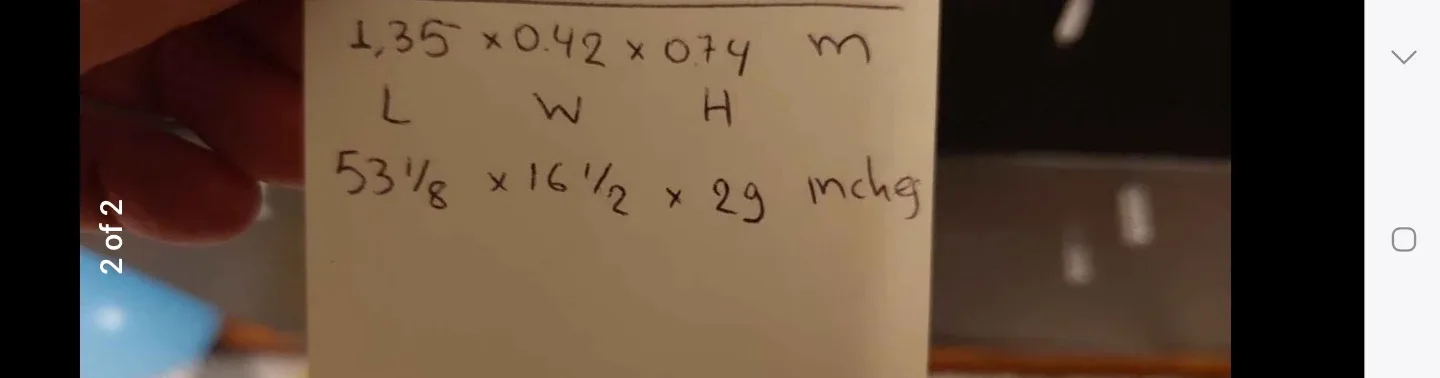 1,35 x 0.42 x 0.74 m
L W H
53 1/8 x 16 1/2 x 29 inches
2 of 2